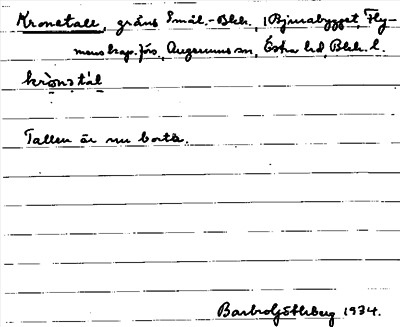 Kronetall, gräns Smål.-Blek., i Bjurabygget, Fly-
mens kap.förs., Augerums sn, Östra hd, Blek. l.
krònstál
Tallen är nu borta.
Barbro Söderberg 1934.